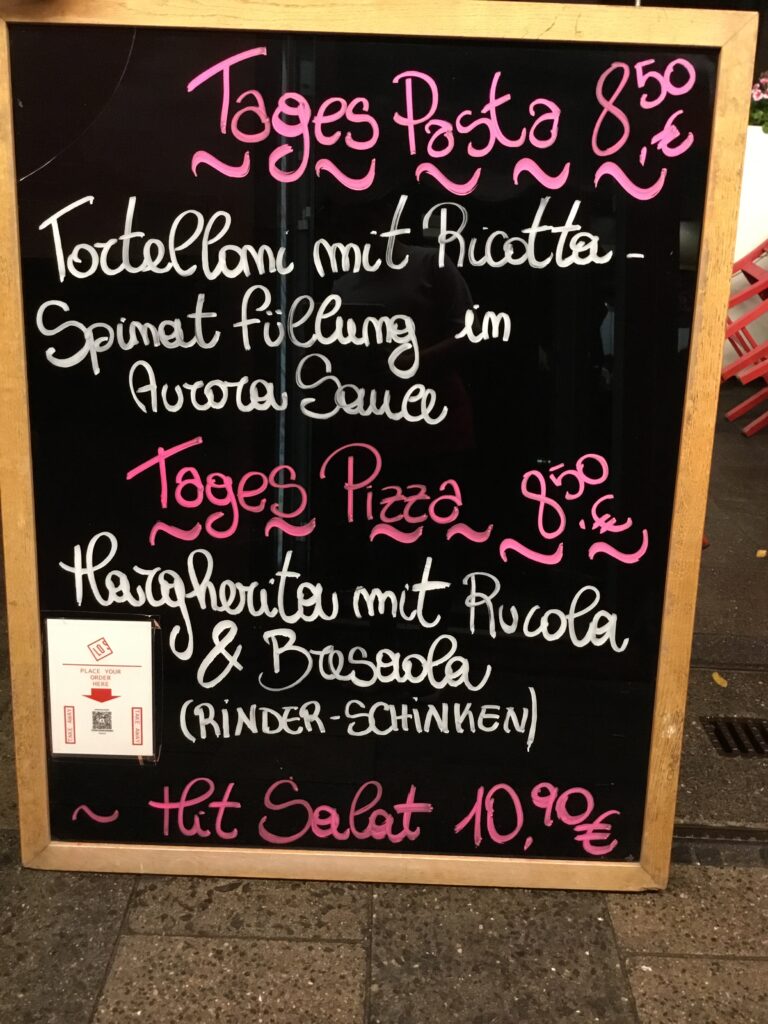 Tages Pasta 8,50 €
Tortelloni mit Ricotta-
Spinat füllung in
Aurora Sauce
Tages Pizza 8,50 €
Margherita mit Rucola
& Bresaola
(RINDER-SCHINKEN)
PLACE YOUR
ORDER
HERE
TAKE AWAY
TAKE AWAY
~ Hit Salat 10,90 €